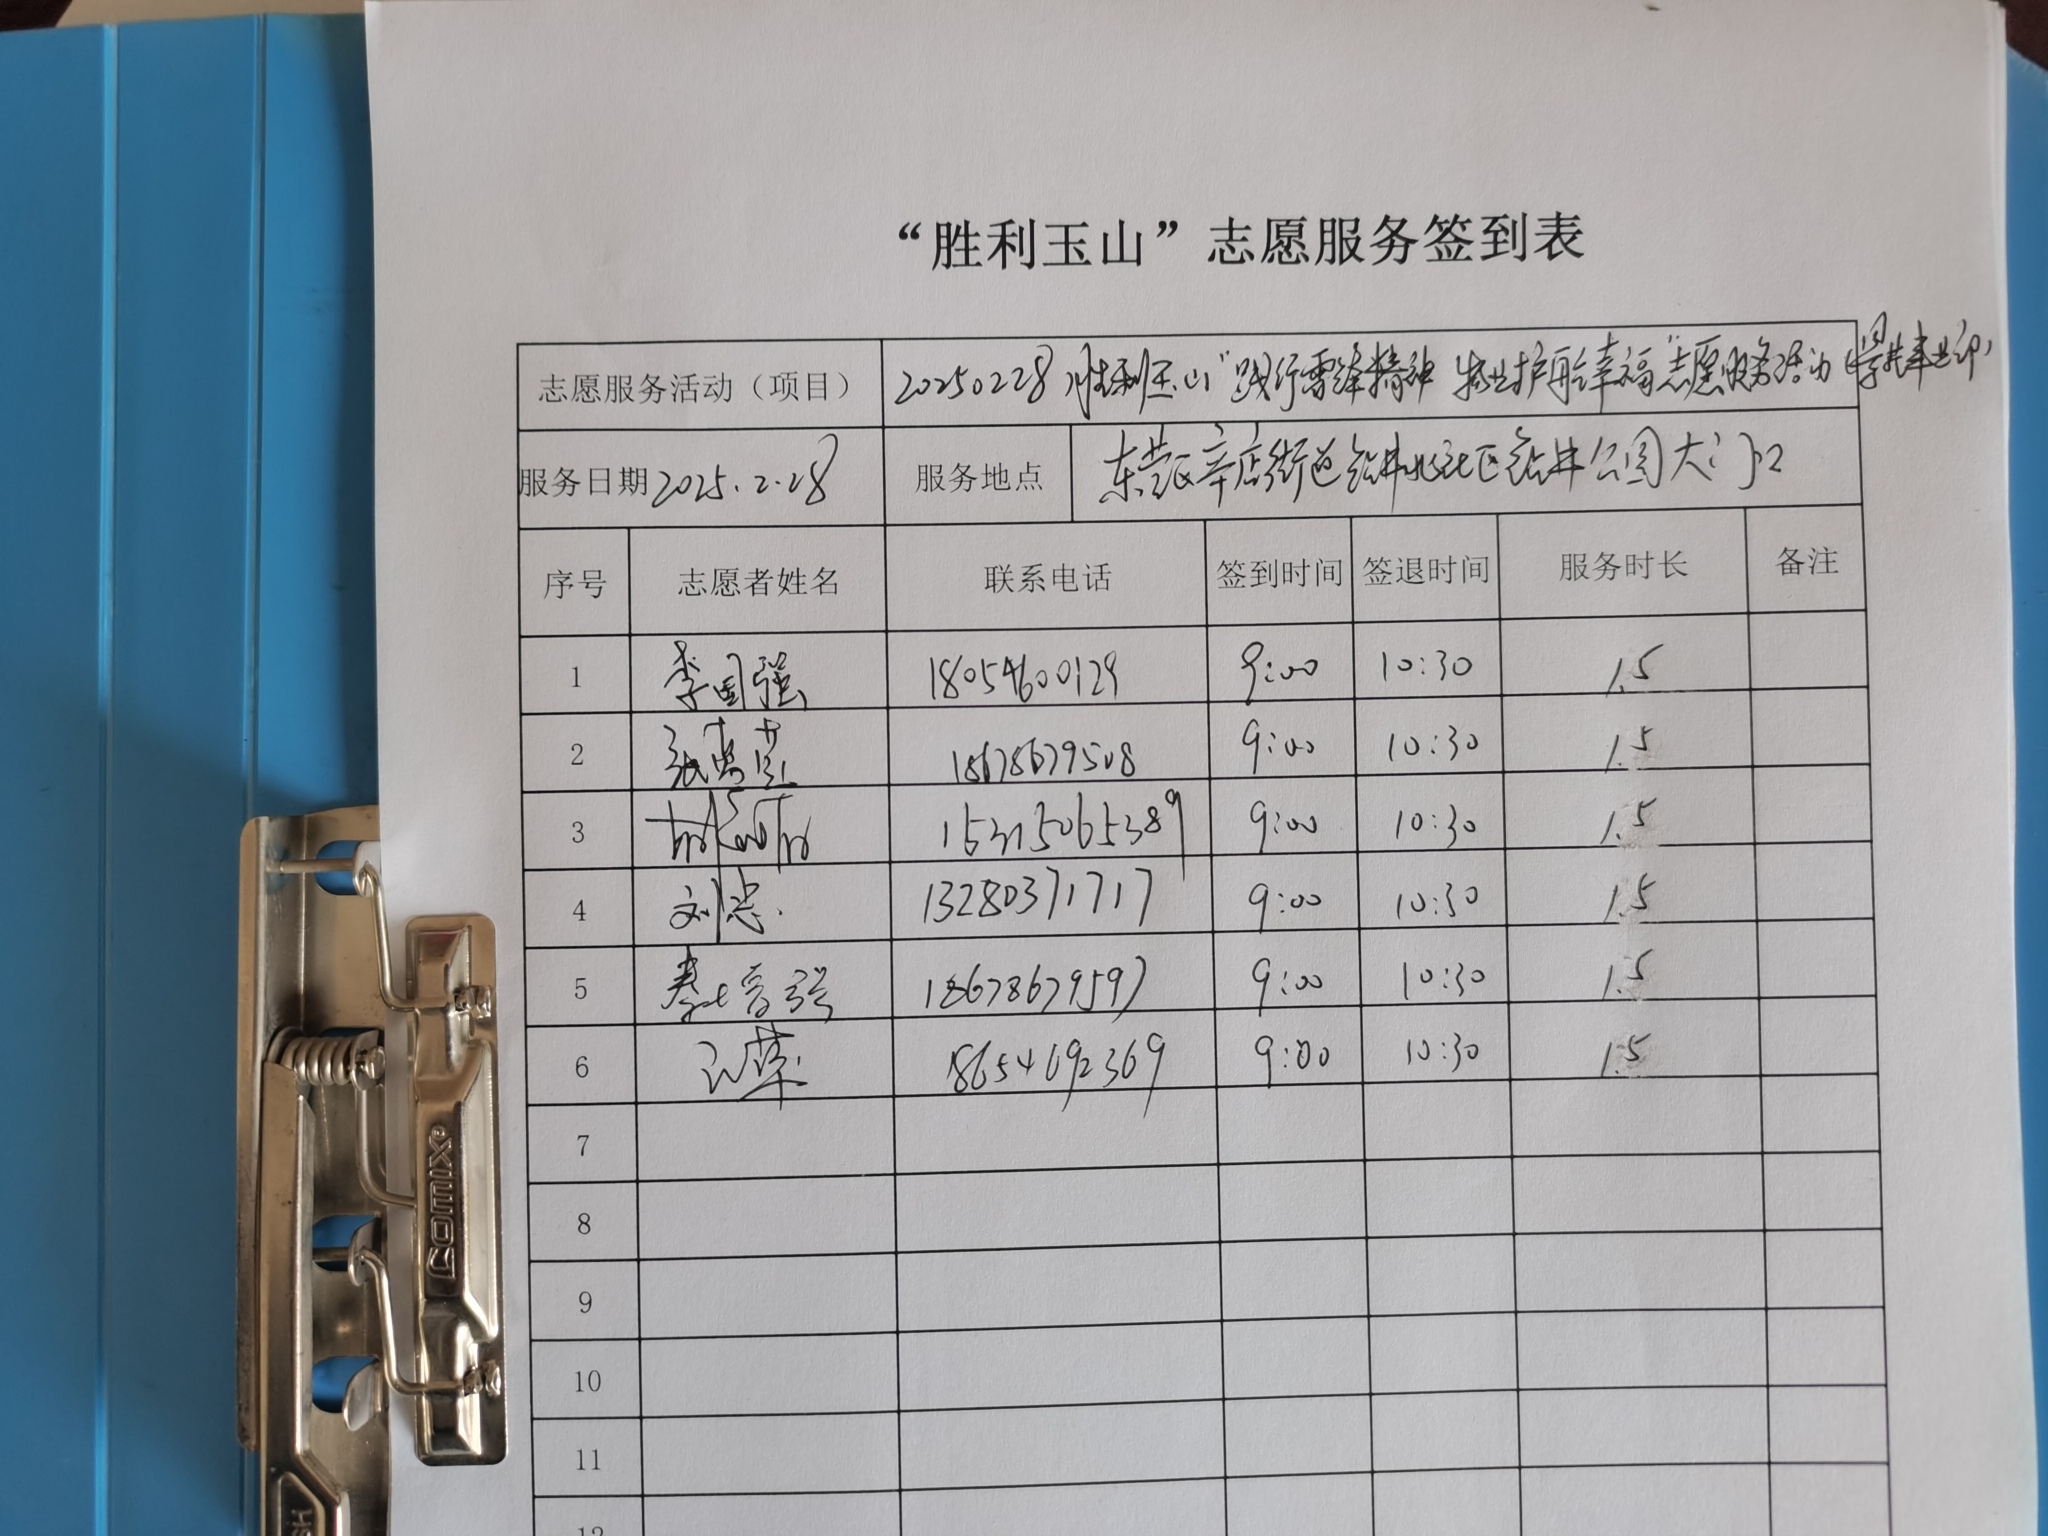 “胜利玉山”志愿服务签到表
志愿服务活动（项目） 20250228 胜利玉山“践行雷锋精神 物业护航幸福”志愿服务活动
服务日期 2025.2.28 服务地点 东营区辛店街道钻井北社区钻井公园大门口
序号 志愿者姓名 联系电话 签到时间 签退时间 服务时长 备注
1 李国强 18054600129 9:00 10:30 1.5
2 18678679508 9:00 10:30 1.5
3 15315065389 9:00 10:30 1.5
4 刘忠 13280371717 9:00 10:30 1.5
5 秦培强 18678679597 9:00 10:30 1.5
6 18654692369 9:00 10:30 1.5
7
8
9
10
11
12
COMIX